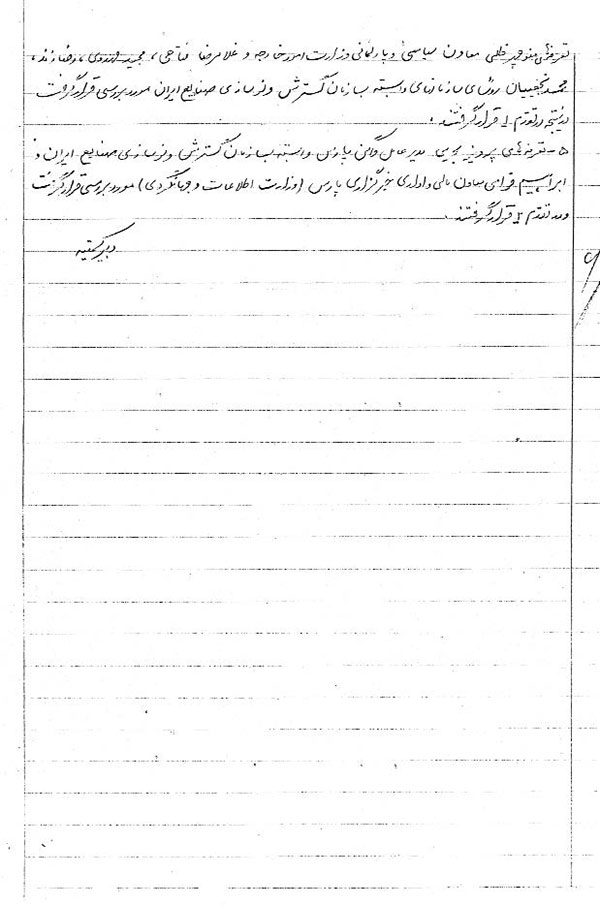 تقرفوی منوچهر ظلی معاون سیاسی و پارلمانی وزارت امور خارجه و غلامرضا فتاحی، مجید ، رضا زند،
محمد نجیبیان رؤسای سازمانهای وابسته بسازمان گسترش و نوسازی صنایع ایران مورد بررسی قرار گرفت
در نتیجه در تقدم ۱ قرار گرفتند.
۵ - پرویز مدیر عامل واگن پارس وابسته بسازمان گسترش و نوسازی صنایع ایران و
ابراهیم قوامی معاون مالی و اداری خبرگزاری پارس (وزارت اطلاعات و جهانگردی) مورد بررسی قرار گرفت
و در تقدم ۱ قرار گرفتند.
دبیر کمیته